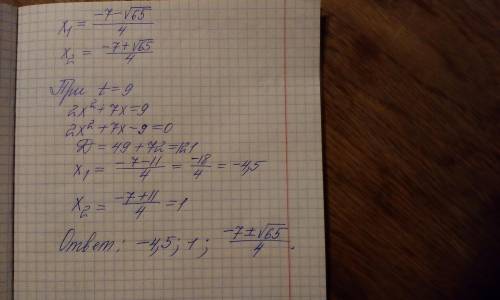 x₁ = (-7-√65)/4
x₂ = (-7+√65)/4
При t=9
2x²+7x=9
2x²+7x-9=0
D = 49+72=121
x₁ = (-7-11)/4 = -18/4 = -4,5
x₂ = (-7+11)/4 = 1
Ответ: -4,5; 1; (-7±√65)/4.